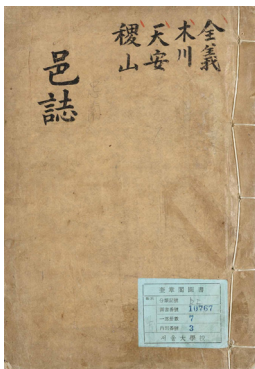 全義
木川
天安
稷山
邑誌
奎章閣圖書
10767
7
3
서울大學校